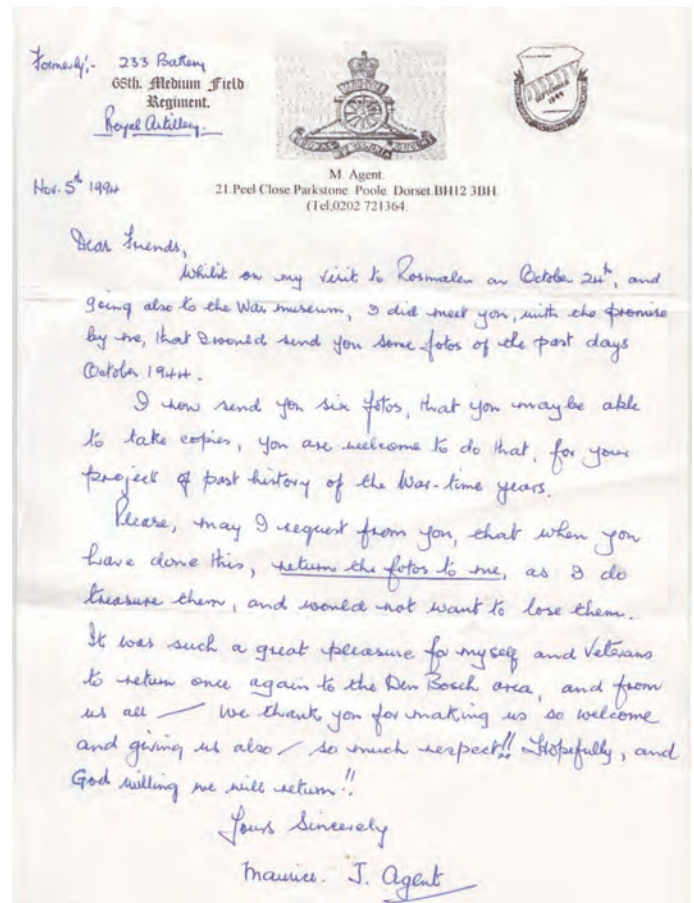 Formerly:- 233 Battery
68th. Medium Field
Regiment.
Royal Artillery.
SEPTEMBER
1944
Nov. 5th 1994
M. Agent.
21.Peel Close.Parkstone. Poole. Dorset.BH12 3BH.
(Tel,0202 721364.
Dear Friends,
Whilst on my visit to Rosmalen on October 24th, and
going also to the War museum, I did meet you, with the promise
by me, that I would send you some fotos of the past days
October 1944.
I now send you six fotos, that you may be able
to take copies, you are welcome to do that, for your
project of past history of the War-time years.
Please, may I request from you, that when you
have done this, return the fotos to me, as I do
treasure them, and would not want to lose them.
It was such a great pleasure for myself and Veterans
to return once again to the Den Bosch area, and from
us all — We thank you for making us so welcome
and giving us also / so much respect!! Hopefully, and
God willing we will return!!
Yours Sincerely
Maurice. J. Agent